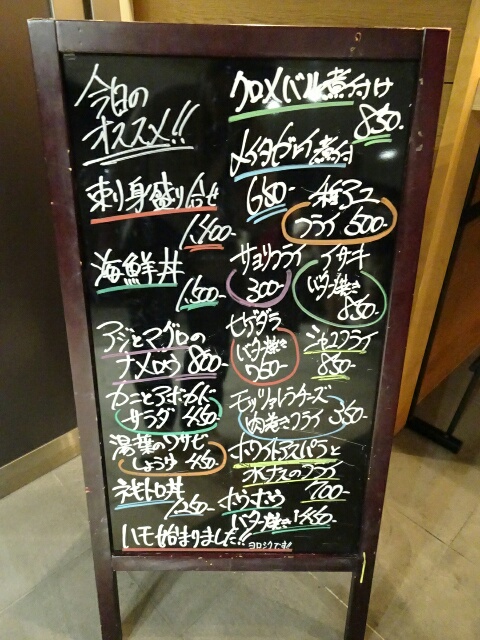 今日の
オススメ!!
刺り身盛り合せ
1,400-
海鮮丼
1,500-
アジとマグロの
ナメロウ 800-
カニとアボカド
サラダ 450-
湯葉のワサビ
しょうゆ 450-
ネギトロ丼
1,250-
ハモ始まりました!!
ヨロシクです!!
クロメバル煮付け
850-
メイタガレイ煮付
680-
稚アユ
フライ 500-
サヨリフライ
300-
イサキ
バター焼き
850-
ヒゲダラ
バター焼き
750-
シャコフライ
850-
モッツァレラチーズ
肉巻きフライ 350-
ホワイトアスパラと
水ナスのフライ
700-
ホウボウ
バター焼き 1,450-